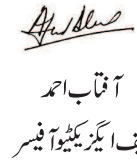 آفتاب احمد
ف ایگزیکٹیو آفیسر